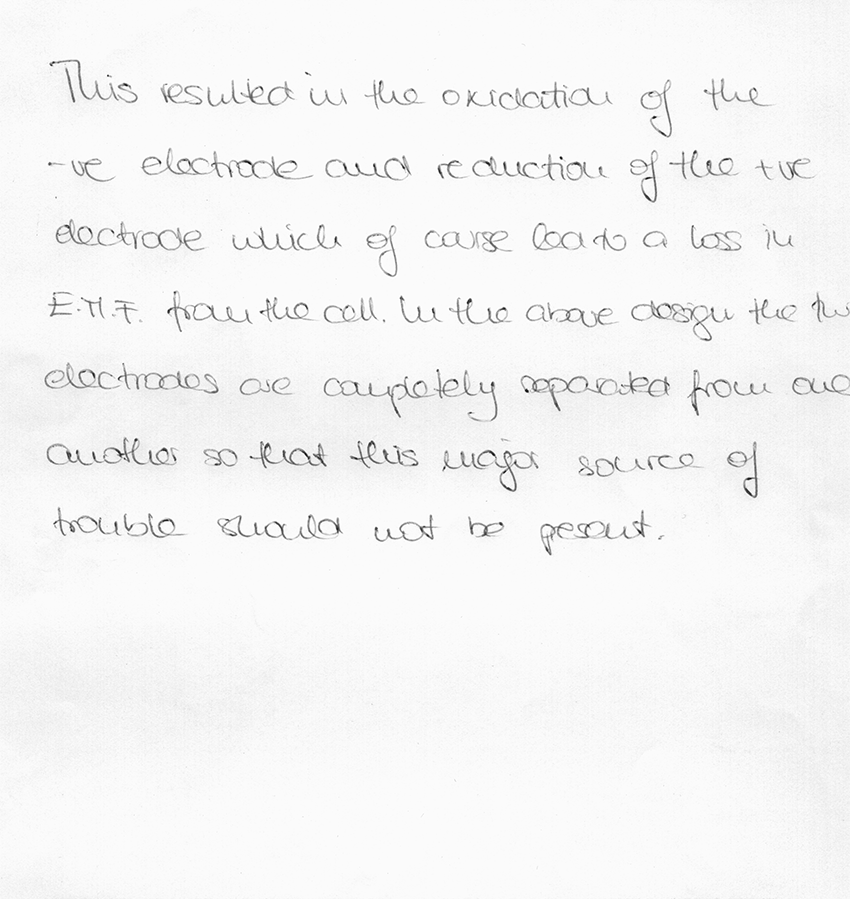 This resulted in the oxidation of the
-ve electrode and reduction of the +ve
electrode which of course lead to a loss in
E.M.F. from the cell. In the above design the two
electrodes are completely separated from one
another so that this major source of
trouble should not be present.